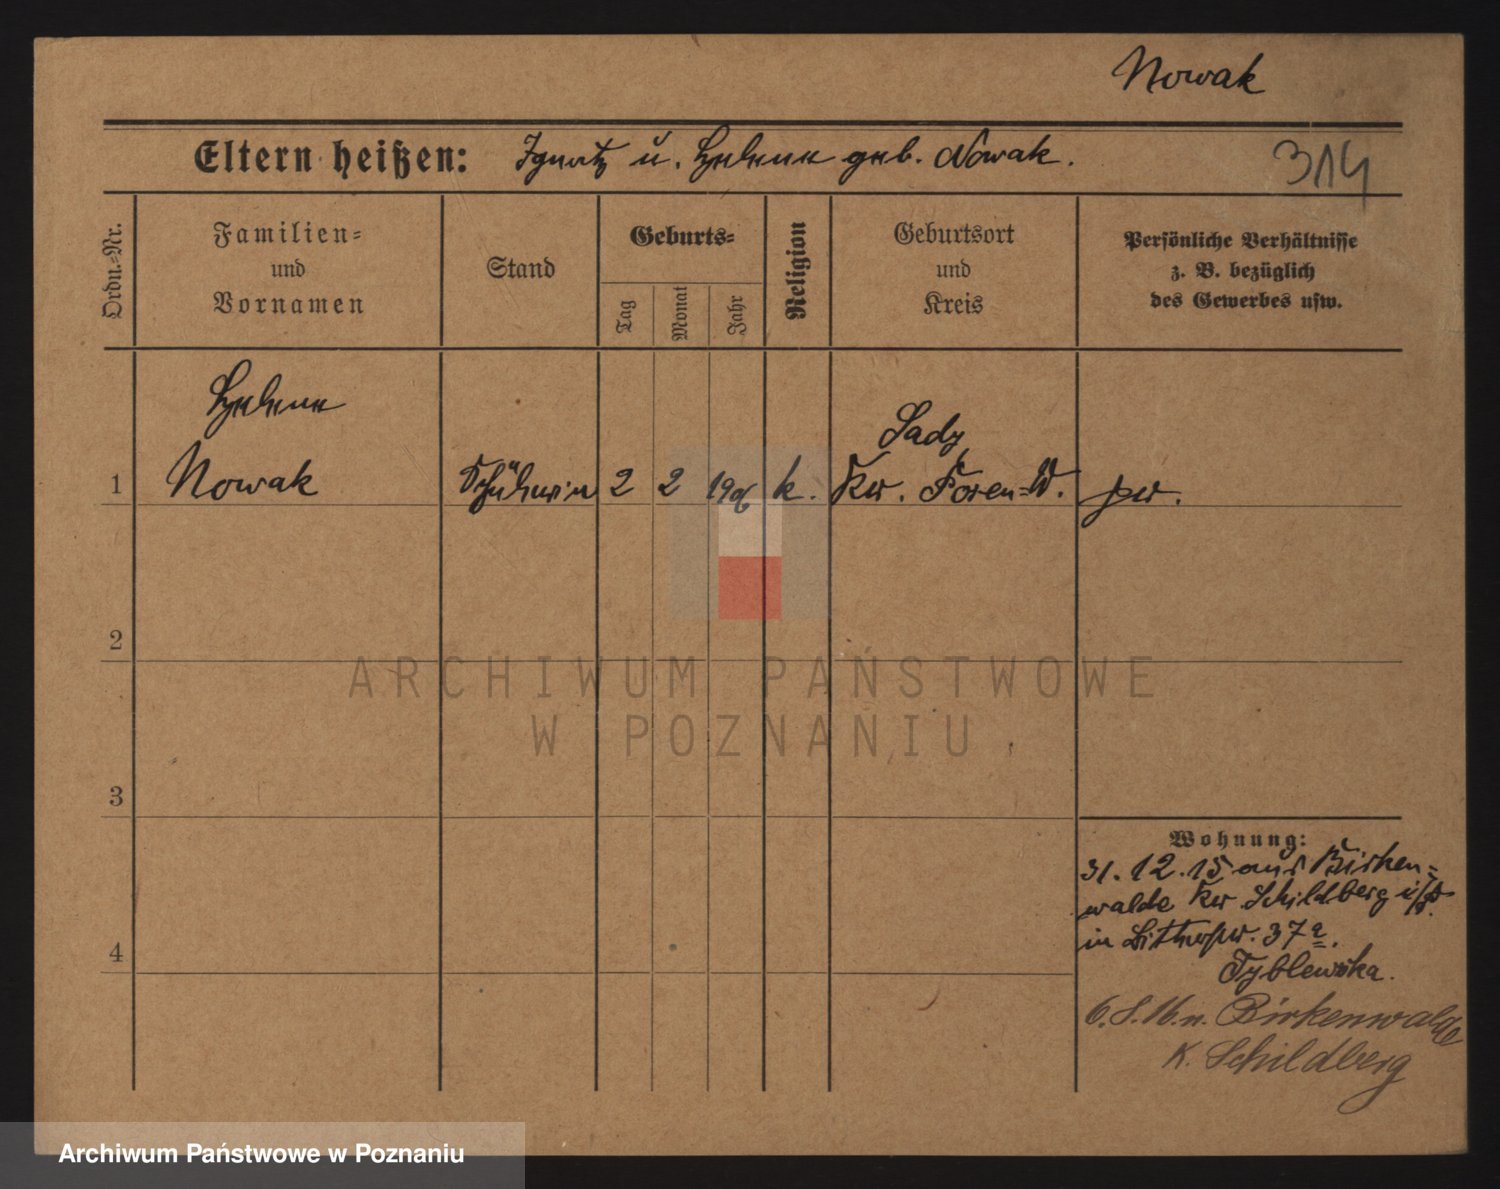 Nowak
Eltern heißen: Ignatz u. Helene geb. Nowak.
314
Ordn.-Nr.
Familien-
und
Vornamen
Stand
Geburts-
Tag
Monat
Jahr
Religion
Geburtsort
und
Kreis
Persönliche Verhältnisse
z. B. bezüglich
des Gewerbes usw.
Helene
Nowak
Schülerin
2
2
k.
Sady
Kr. Posen-W.
pr.
1
2
3
4
ARCHIWUM PAŃSTWOWE
W POZNANIU
Wohnung:
31.12.15 aus Birken-
walde Kr. Schildberg i/P.
in 37a.
Tyblewska.
6. 16. n. Birkenwalde
K. Schildberg
Archiwum Państwowe w Poznaniu